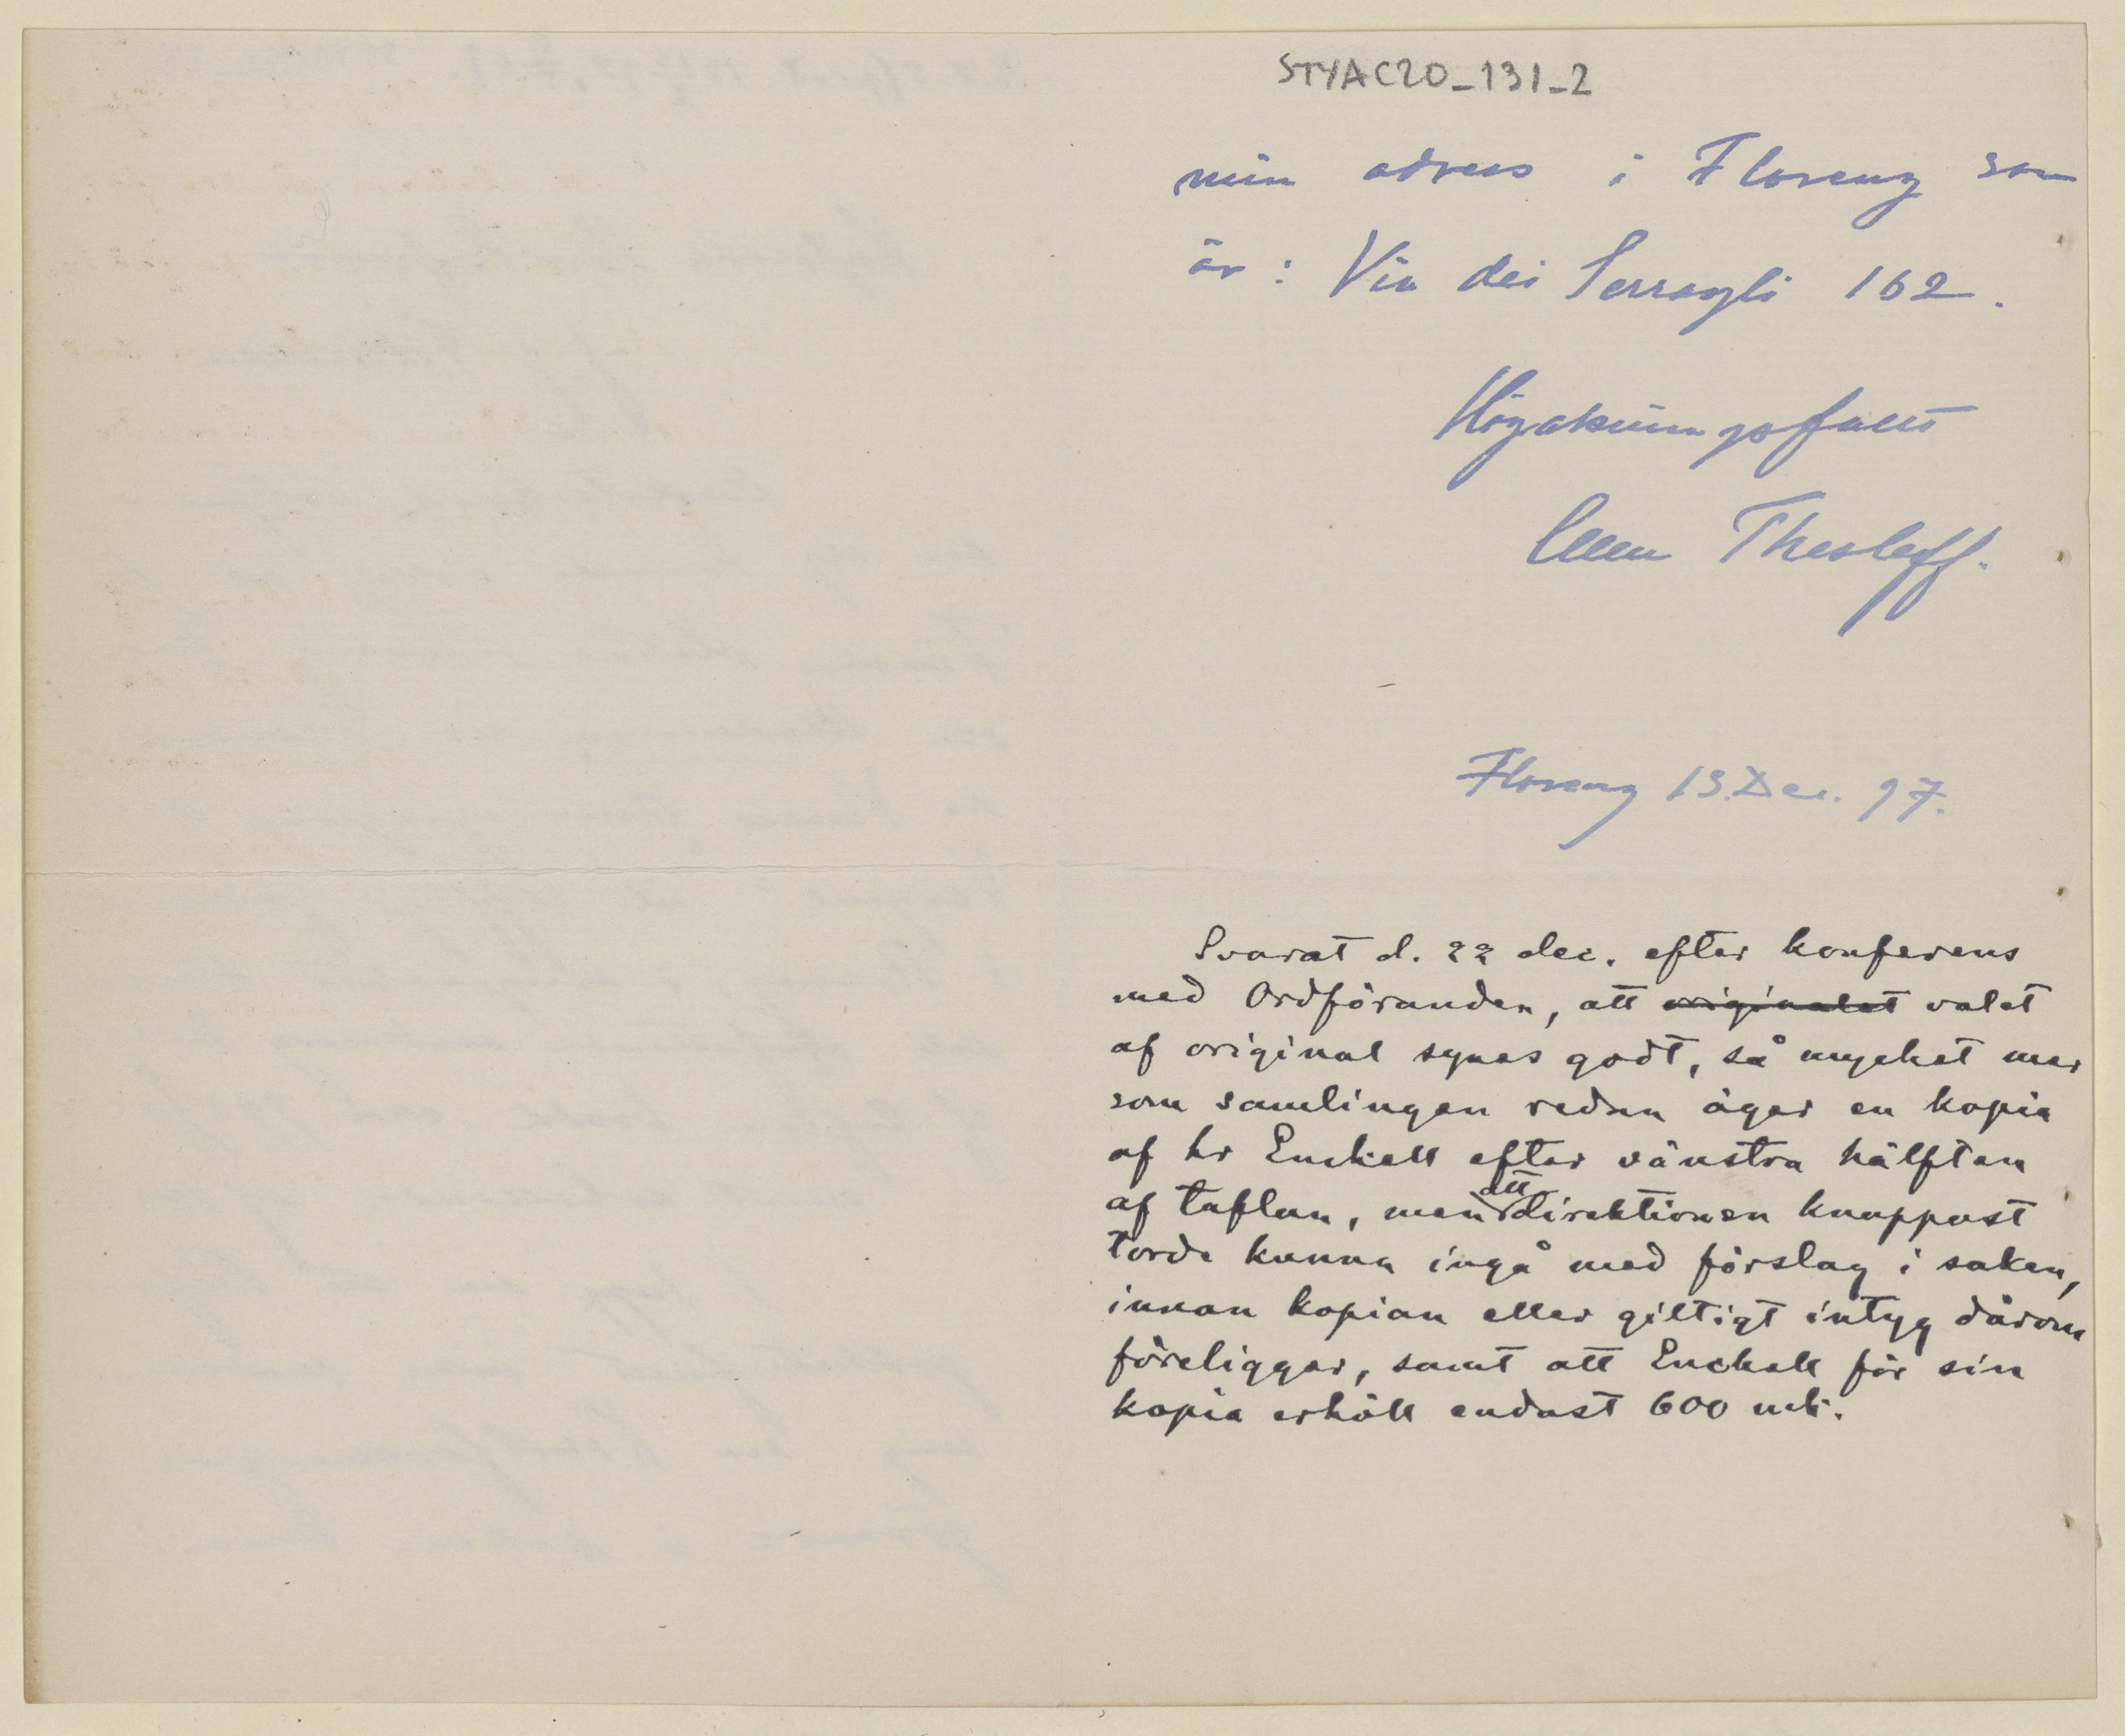 STYAC20_131_2
min adress i Florenz som
är: Via dei Serragli 162.
Högaktningsfullt
Ellen Thesleff.
Florenz 13. Dec. 97.
Svarat d. 22 dec. efter konferens
med Ordföranden, att originalet valet
af original synes godt, så mycket mer
som samlingen redan äger en kopia
af hr Enckell efter vänstra hälften
af taflan, men att direktionen knappast
torde kunna ingå med förslag i saken,
innan kopian eller giltigt intyg därom
föreligger, samt att Enckell för sin
kopia erhöll endast 600 mk.